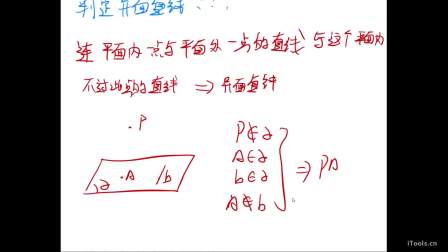 判定异面直线:
连 平面内一点与平面外一点的直线 与这个平面内
不过此点的直线 ⇒ 异面直线
.P
P∉α
A∈α
α .A /b
b∈α
⇒ PA
A∉b
iTools.cn